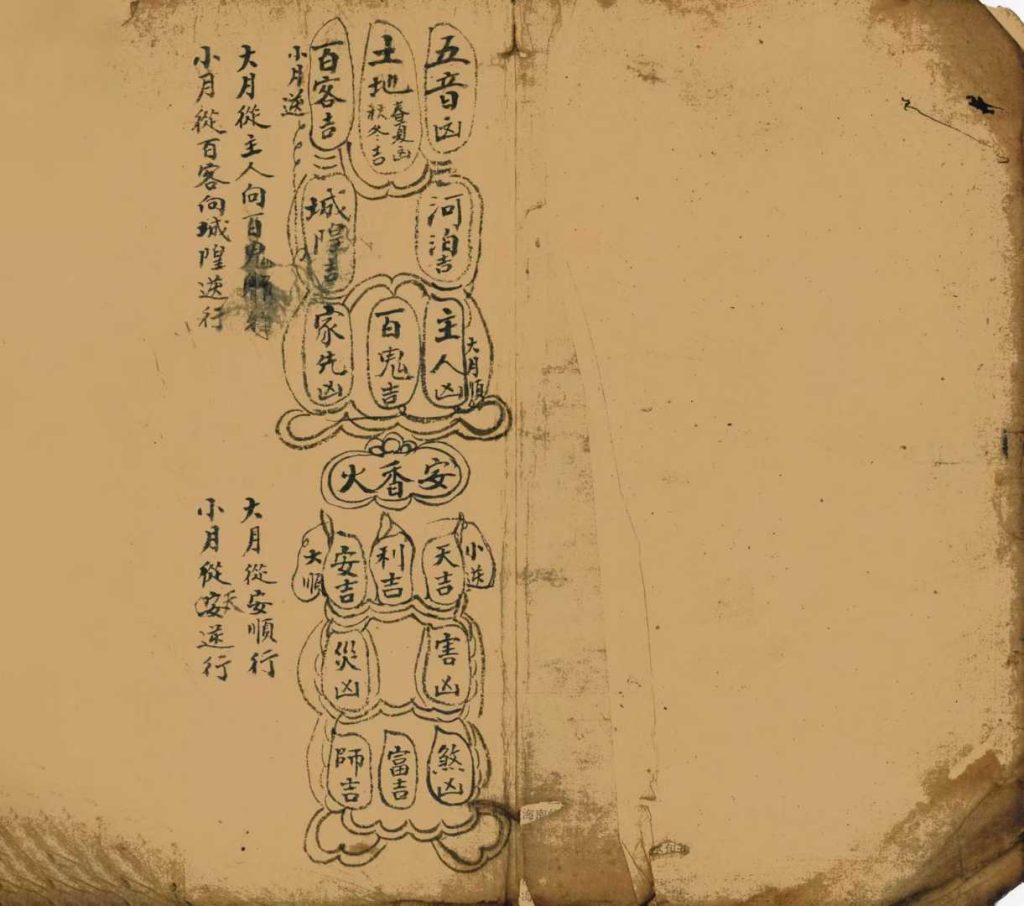 五音凶
土地
春夏凶
秋冬吉
百客吉
小月逆
河泊吉
城隍吉
主人凶
大月順
百鬼吉
家先凶
大月從主人向百鬼行
小月從百客向城隍逆行
安香火
小逆
天吉
利吉
安吉
大順
害凶
災凶
煞凶
富吉
師吉
大月從安順行
小月從天逆行